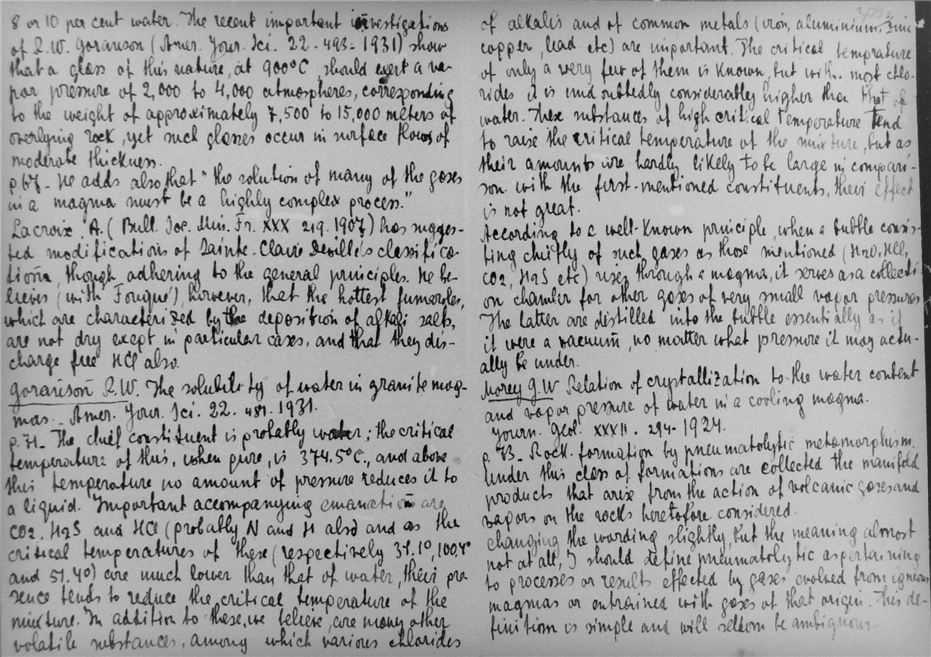 8 or 10 per cent water. The recent important investigations
of R.W. Goranson (Amer. Jour. Sci. 22. 493-1931) show
that a glass of this nature, at 900°C, should exert a va-
por pressure of 2,000 to 4,000 atmospheres, corresponding
to the weight of approximately 7,500 to 15,000 meters of
overlying rock, yet such glasses occur in surface flows of
moderate thickness.
p.67_ He adds also that "the solution of many of the gases
in a magma must be a highly complex process."
Lacroix. A. (Bull. Soc. Min. Fr. XXX 219. 1907) has sugges-
ted modifications of Sainte-Claire Deville's classifica-
tions, though adhering to the general principles. He be-
lieves (with Fouqué), however, that the hottest fumaroles,
which are characterized by the deposition of alkali salts,
are not dry exept in particular cases, and that they dis-
charge free HCl also.
Goranson R.W. The solubility of water in granite mag-
mas._ Amer. Jour. Sci. 22. 481. 1931.
p.71_ The chief constituent is probably water; the critical
temperature of this, when pure, is 374.5°C., and above
this temperature no amount of pressure reduces it to
a liquid. Important accompanying emanation are
CO2. H2S and HCl (probably N and H also and as the
critical temperatures of these (respectively 31.1°, 100,4°
and 51.4°) are much lower than that of water, their pre-
sence tends to reduce the critical temperature of the
mixture. In addition to these, we believe, are many other
volatile substances, among which various chlorides
of alkalis and of common metals (iron, aluminium, zinc
copper, lead etc) are important. The critical temprature
of only a very few of them is known, but with most chlo-
rides it is undoubtedly considerably higher than that of
water. These substances of high critical temperature tend
to raise the critical temperature of the mixture, but as
their amounts are hardly likely to be large in compari-
son with the first-mentioned constituents, their effect
is not great.
According to a well-known principle, when a bubble consis-
ting chiefly of such gases as those mentioned (H2O, HCl,
CO2, H2S etc) rises through a magma, it serves as a collecti-
on chamber for other gases of very small vapor pressures
The latter are distilled into the bubble essentially as if
it were a vacuum, no matter what pressure it may actu-
ally be under.
Morey G.W Relation of crystallization to the water content
and vapor pressure of water in a cooling magma.
Journ. Geol. XXXII. 294-1924.
p. 73_ Rock-formation by pneumatolytic metamorphism.
Under this class of formations are collected the manifold
products that arise from the action of volcanic gases and
vapors on the rocks heretofore considered.
changing the wording slightly, but the meaning almost
not at all, I should define pneumatolytic as pertaining
to processes or results effected by gases evolved from igneous
magmas or entrained with gases of that origin. This de-
finition is simple and will seldom be ambiguous.